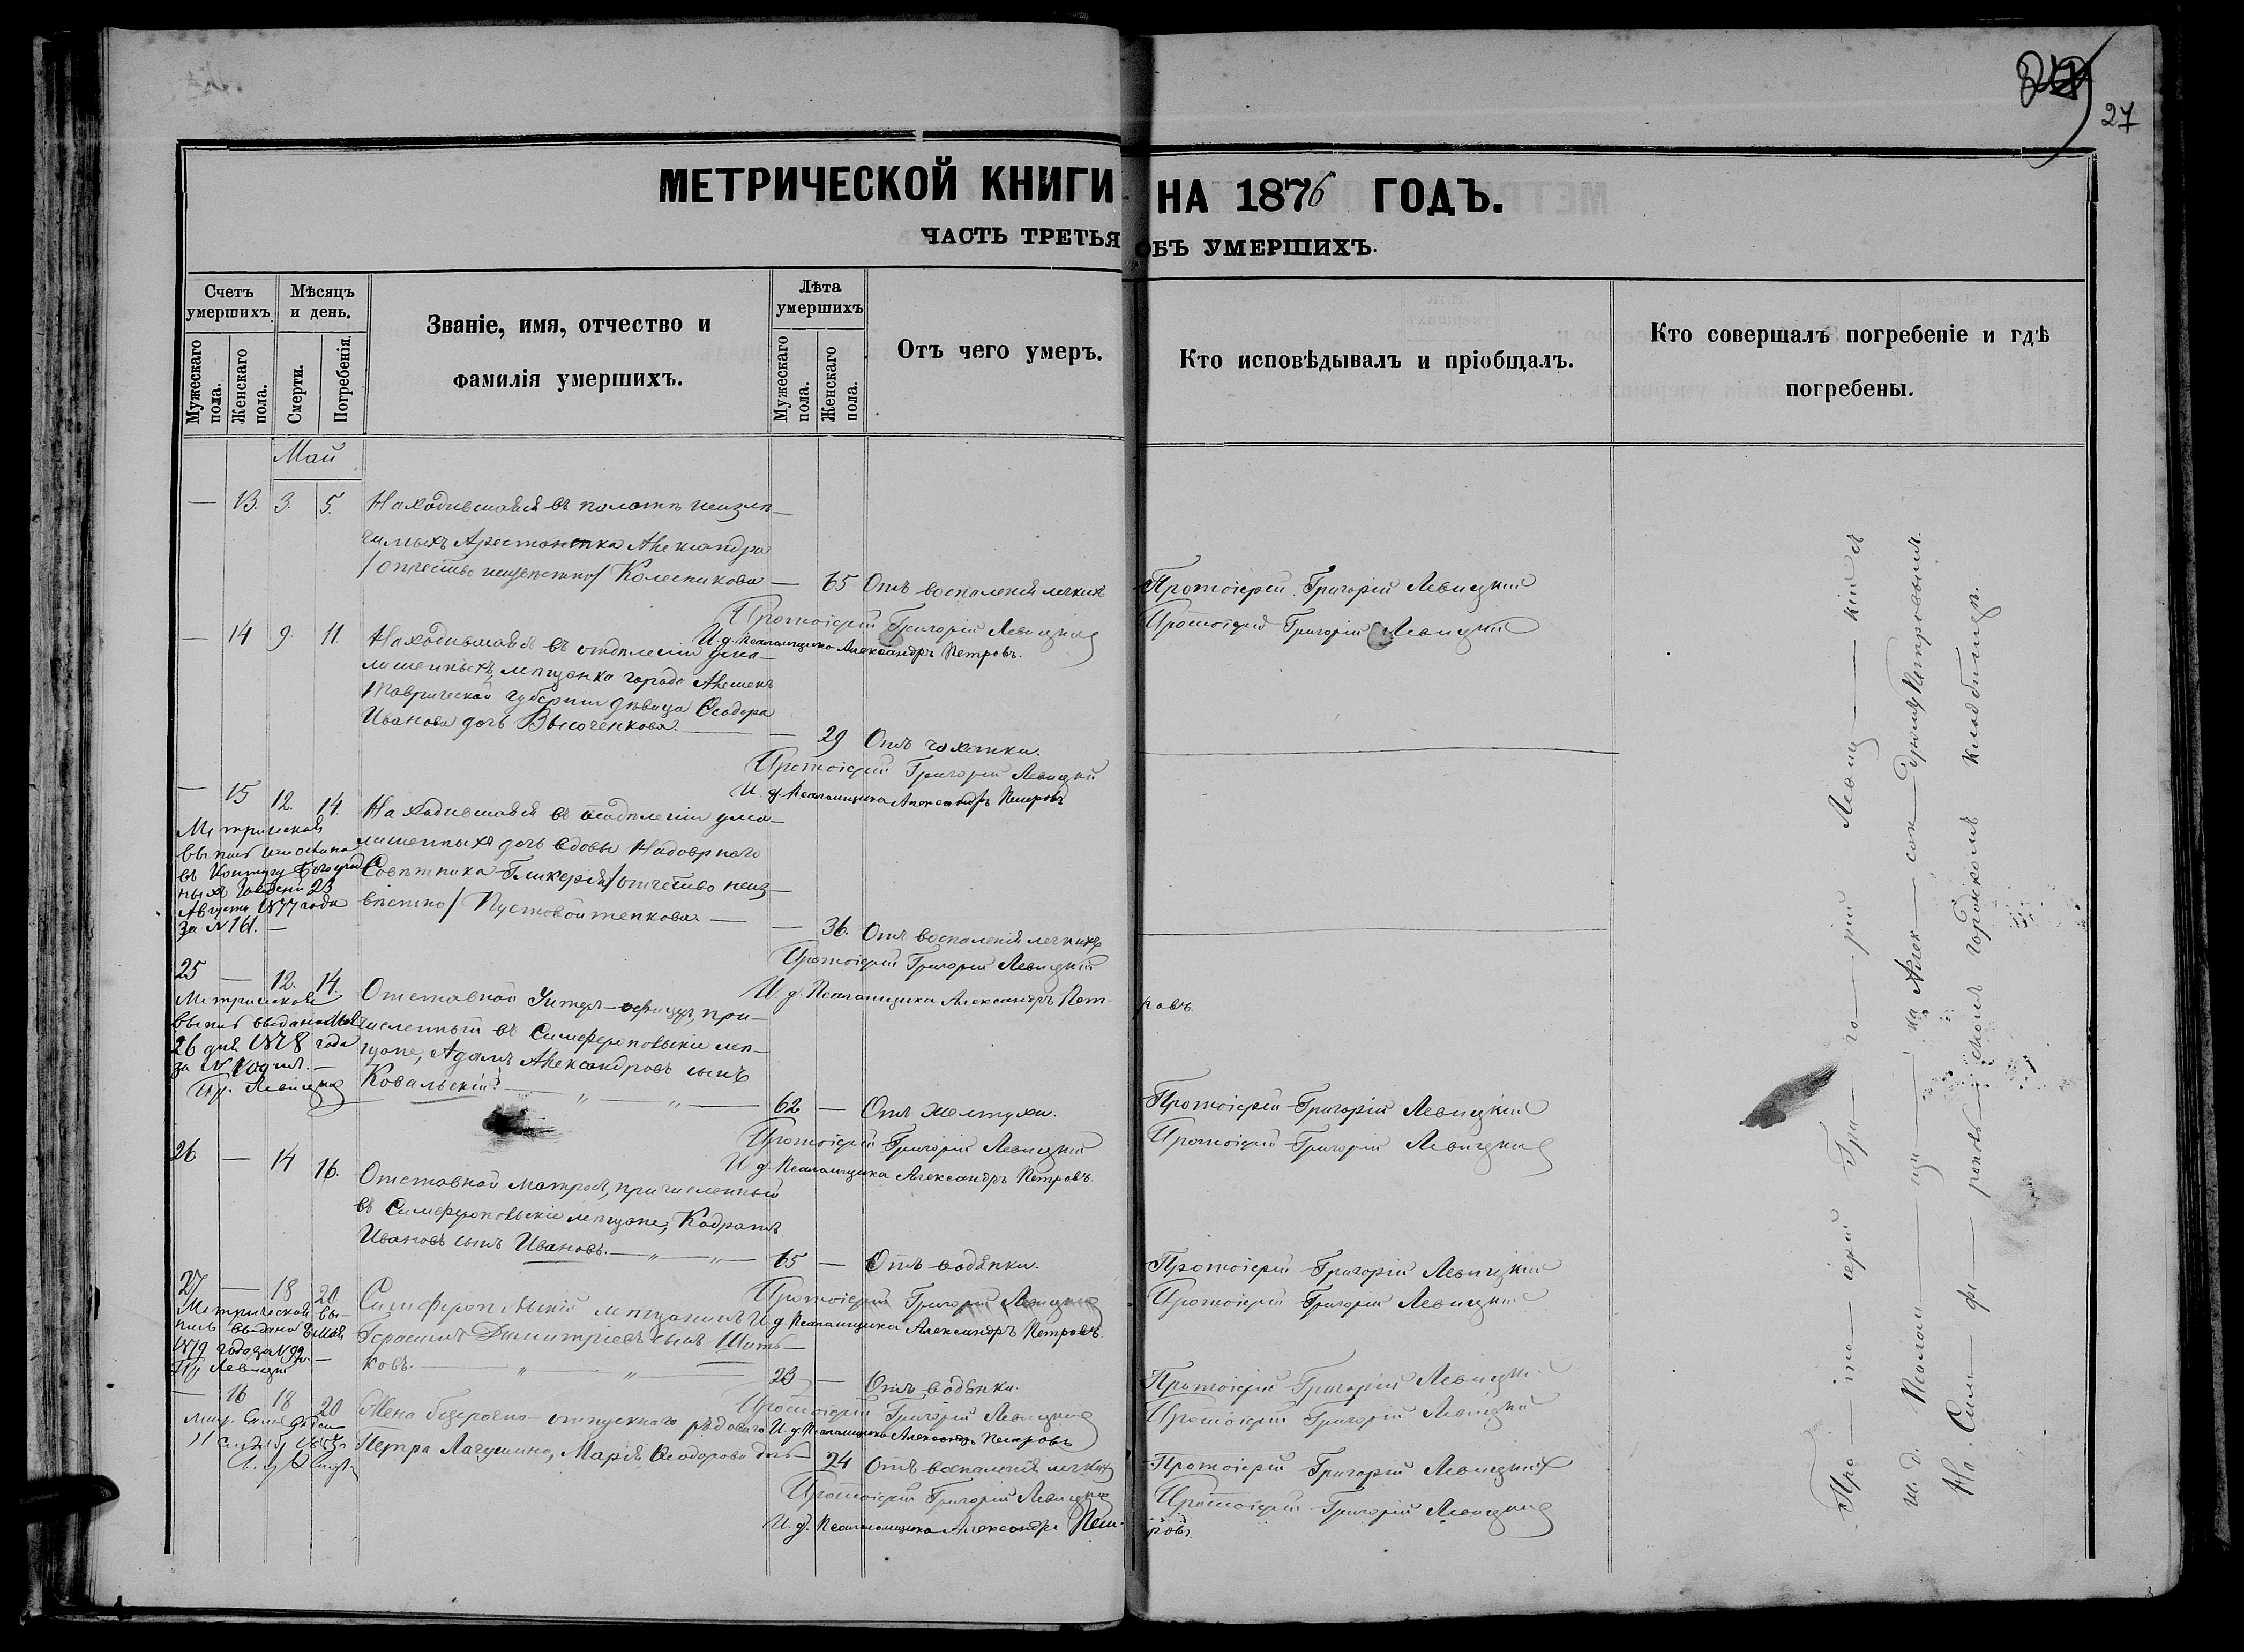 27
МЕТРИЧЕСКОЙ КНИГИ НА 1876 ГОДЪ.
ЧАСТЬ ТРЕТЬЯ ОБЪ УМЕРШИХЪ.
Счетъ умершихъ.
Мужескаго пола.
Женскаго пола.
Мѣсяцъ и день.
Смерти.
Погребенія.
Званіе, имя, отчество и
фамилія умершихъ.
Лѣта умершихъ
Мужескаго пола.
Женскаго пола.
Отъ чего умеръ.
Кто исповѣдывалъ и пріобщалъ.
Кто совершалъ погребеніе и гдѣ
погребены.
Май
— 13. 3. 5. Находившаяся въ палатѣ неизлѣ-
чимыхъ Арестантка Александра
/отчество неизвѣстно/ Колесникова — 65 Отъ воспаленія легкихъ Протоіерей Григорій Левицкій
Протоіерей Григорій Левицкій Протоіерей Григорій Левицкій
И. д. Псаломщика Александръ Петровъ.
— 14 9. 11. Находившаяся въ отдѣленіи ума-
лишенныхъ, мѣщанка города Алешекъ
Таврической губерніи дѣвица Ѳеодора
Иванова дочь Высоченкова. — 29 Отъ чахотки.
Протоіерей Григорій Левицкій
И. д. Псаломщика Александръ Петровъ
— 15 12. 14. Находившаяся въ отдѣленіи ума-
лишенныхъ дочь вдовы Надворнаго
Совѣтника Гликерія /отчество неиз-
вѣстно/ Пустовойтенкова. — 36. Отъ воспаленія легкихъ
Метрическая
выпись
въ Контору Богоугод
ныхъ Заведеній 23
Августа 1877 года
за № 161. —
Протоіерей Григорій Левицкій
И. д. Псаломщика Александръ Петровъ.
25 — 12. 14. Отставной Унтеръ-офицеръ, при-
численный въ Симферопольскіе мѣ-
щане, Адамъ Александровъ сынъ
Ковальскій. — 62 — Отъ желтухи. Протоіерей Григорій Левицкій
Метрическая
выпись выдана Мая
26 дня 1878 года
за №
Пр. Левицкій
Протоіерей Григорій Левицкій Протоіерей Григорій Левицкій
И д. Псаломщика Александръ Петровъ.
26 — 14 16. Отставной матросъ, причисленный
въ Симферопольскіе мѣщане, Кодратъ
Ивановъ сынъ Ивановъ. — 65 — Отъ водянки. Протоіерей Григорій Левицкій
Протоіерей Григорій Левицкій Протоіерей Григорій Левицкій
И д. Псаломщика Александръ Петровъ.
27 — 18 20 Симферопольскій мѣщанинъ
Герасимъ Димитріевъ сынъ Шить-
ковъ. — 23 — Отъ водянки. Протоіерей Григорій Левицкій
Метрическая вы-
пись выдана 8 Мая
1879 года за № 99
Пр. Левицкій
Протоіерей Григорій Левицкій Протоіерей Григорій Левицкій
И. д. Псаломщика Александръ Петровъ
— 16 18 20 Жена безсрочно-отпускнаго рядоваго
Петра Лагушина, Марія Ѳеодорова дочь — 24 Отъ воспаленія легкихъ Протоіерей Григорій Левицкій
Протоіерей Григорій Левицкій Протоіерей Григорій Левицкій
И. д. Псаломщика Александръ Петровъ.
Про — то — іерей Гри — го — рій Левиц — кій съ
и. д. Псалом — щи — ка Алек — сан — дромъ Петровымъ.
На Сим — фе — рополь — скомъ городскомъ кладбищѣ.